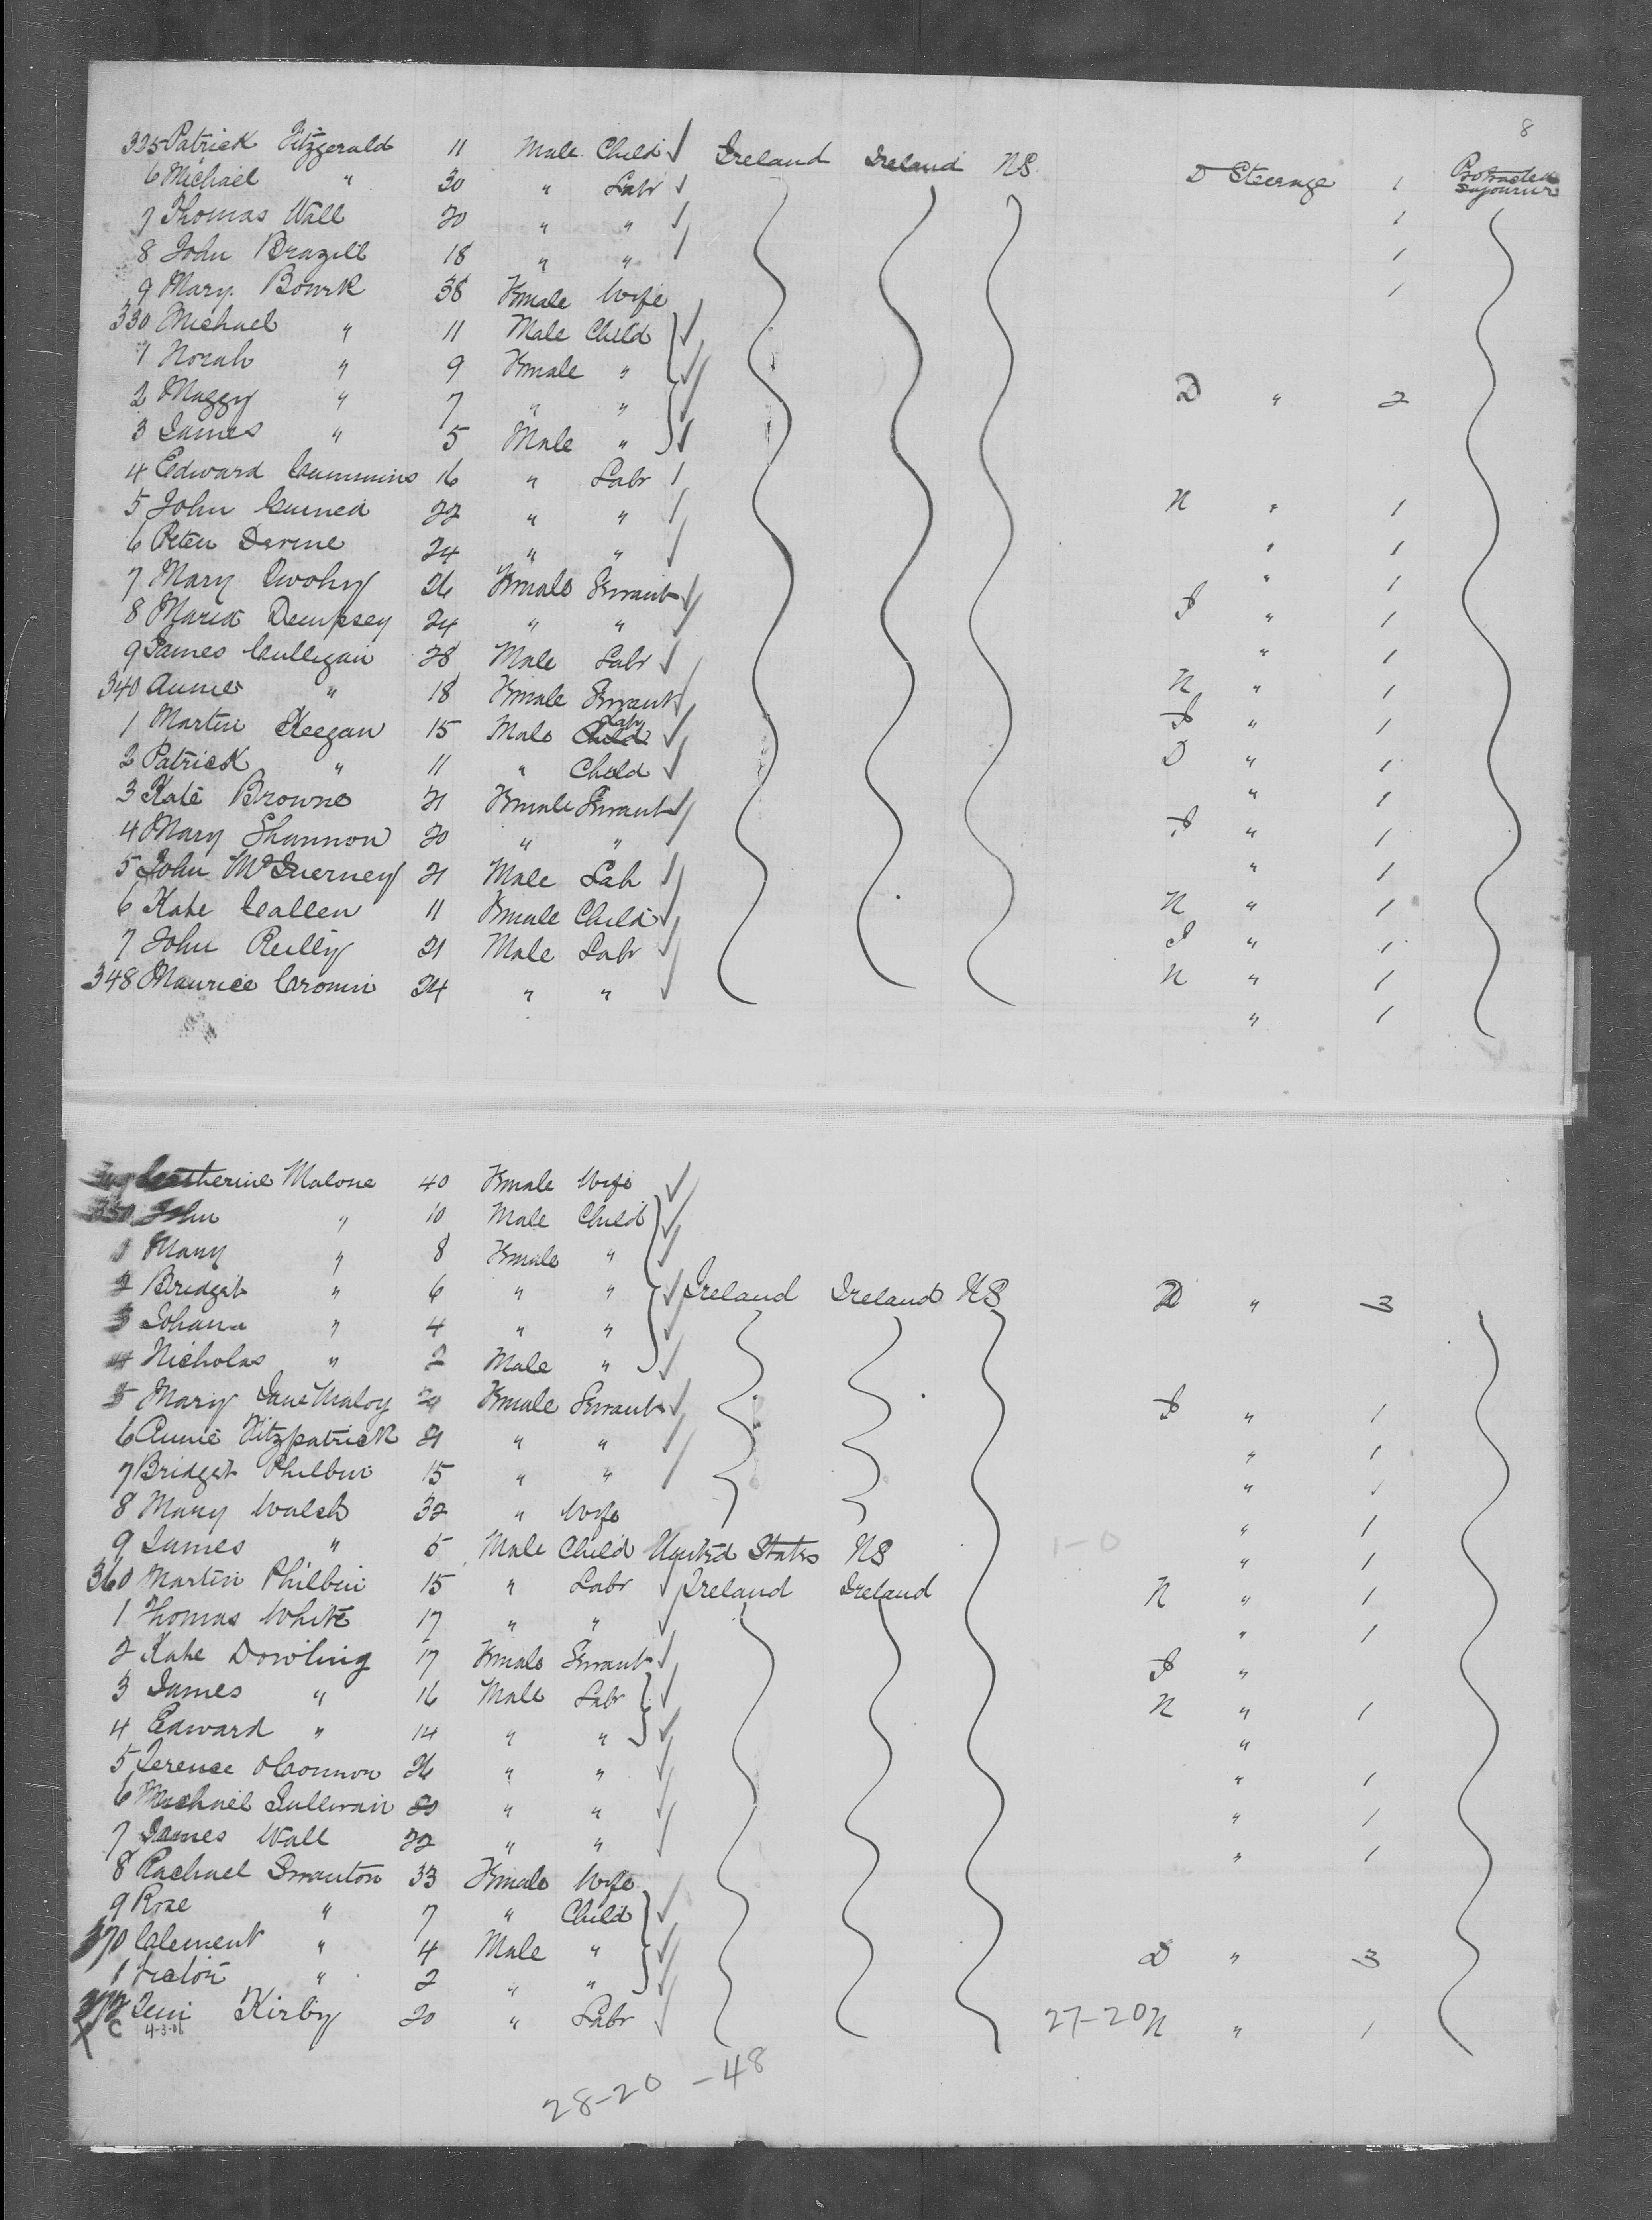 8
325 Patrick Fitzgerald 11 Male Child Ireland Ireland US D Steerage 1 Protracted Sojourn
6 Michael " 30 " Labr 1
7 Thomas Wall 20 " " 1
8 John Brazill 18 " " 1
9 Mary Bourk 38 Female Wife
330 Michael " 11 Male Child
1 Norah " 9 Female "
2 Maggy " 7 " " D " 2
3 James " 5 Male "
4 Edward Cummins 16 " Labr N " 1
5 John 22 " " " 1
6 Peter Devine 24 " " " 1
7 Mary Twohy 26 Female Servant S " 1
8 Maria Dempsey 24 " " " 1
9 James Culligan 28 Male Labr N " 1
340 Annie " 18 Female Servant S " 1
1 Martin Keegan 15 Male Child Labr D " 1
2 Patrick " 11 " Child " 1
3 Kate Browne 21 Female Servant S " 1
4 Mary Shannon 20 " " " 1
5 John McInerney 21 Male Lab N " 1
6 Kate Callen 11 Female Child S " 1
7 John Reilly 21 Male Labr N " 1
348 Maurice Cronin 24 " " " 1
349 Catherine Malone 40 Female Wife
350 John " 10 Male Child
1 Mary " 8 Female "
2 Bridget " 6 " " Ireland Ireland US D " 3
3 Johana " 4 " "
4 Nicholas " 2 Male "
5 Mary Jane Maloy Female Servant S " 1
6 Annie Fitzpatrick 21 " " " 1
7 Bridget Philbin 15 " " " 1
8 Mary Walsh 32 " Wife " 1
9 James " 5 Male Child United States US 1-0 " 1
360 Martin Philbin 15 " Labr Ireland Ireland N " 1
1 Thomas White 17 " " " 1
2 Kate Dowling 17 Female Servant S "
3 James " 16 Male Labr N " 1
4 Edward " 14 " " "
5 Terence OConnor 26 " " " 1
6 Michael Sullivan 20 " " " 1
7 James Wall 22 " " " 1
8 Rachael Swanton 33 Female Wife
9 Rose " 7 " Child
370 Clement " 4 Male " D " 3
1 Victor " 2 " "
372 Kirby 20 " Labr 27-20 N " 1
X C 4-3-06
28-20 -48